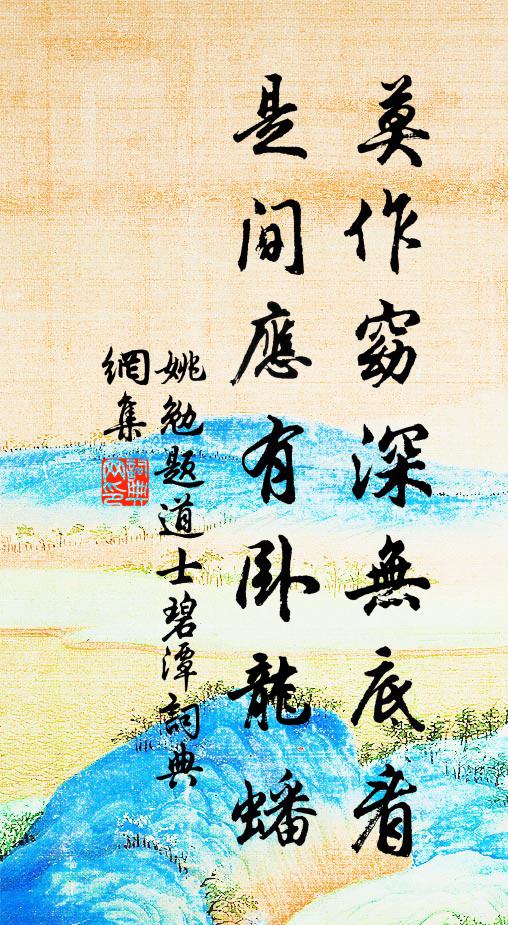 莫作窈深無底看
是間應有卧龍蟠
姚勉題道士碧潭詞典
網集
詞典